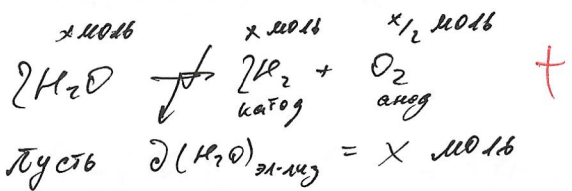 x моль x моль x/2 моль
2H₂O → 2H₂ + O₂ +
катод анод
Пусть ∂(H₂O)эл-лиз = x моль